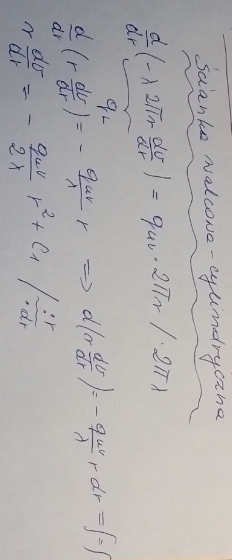 Ścianka walcowa - cylindryczna
d/dr (-λ 2πr dv/dr) = quv · 2πr / · 2πλ
qL
d/dr (r dv/dr) = - quv/λ r ⇒ d(r dv/dr) = - quv/λ r dr = ∫ = ∫
r dv/dr = - quv/2λ r² + C1 / :r ·dr